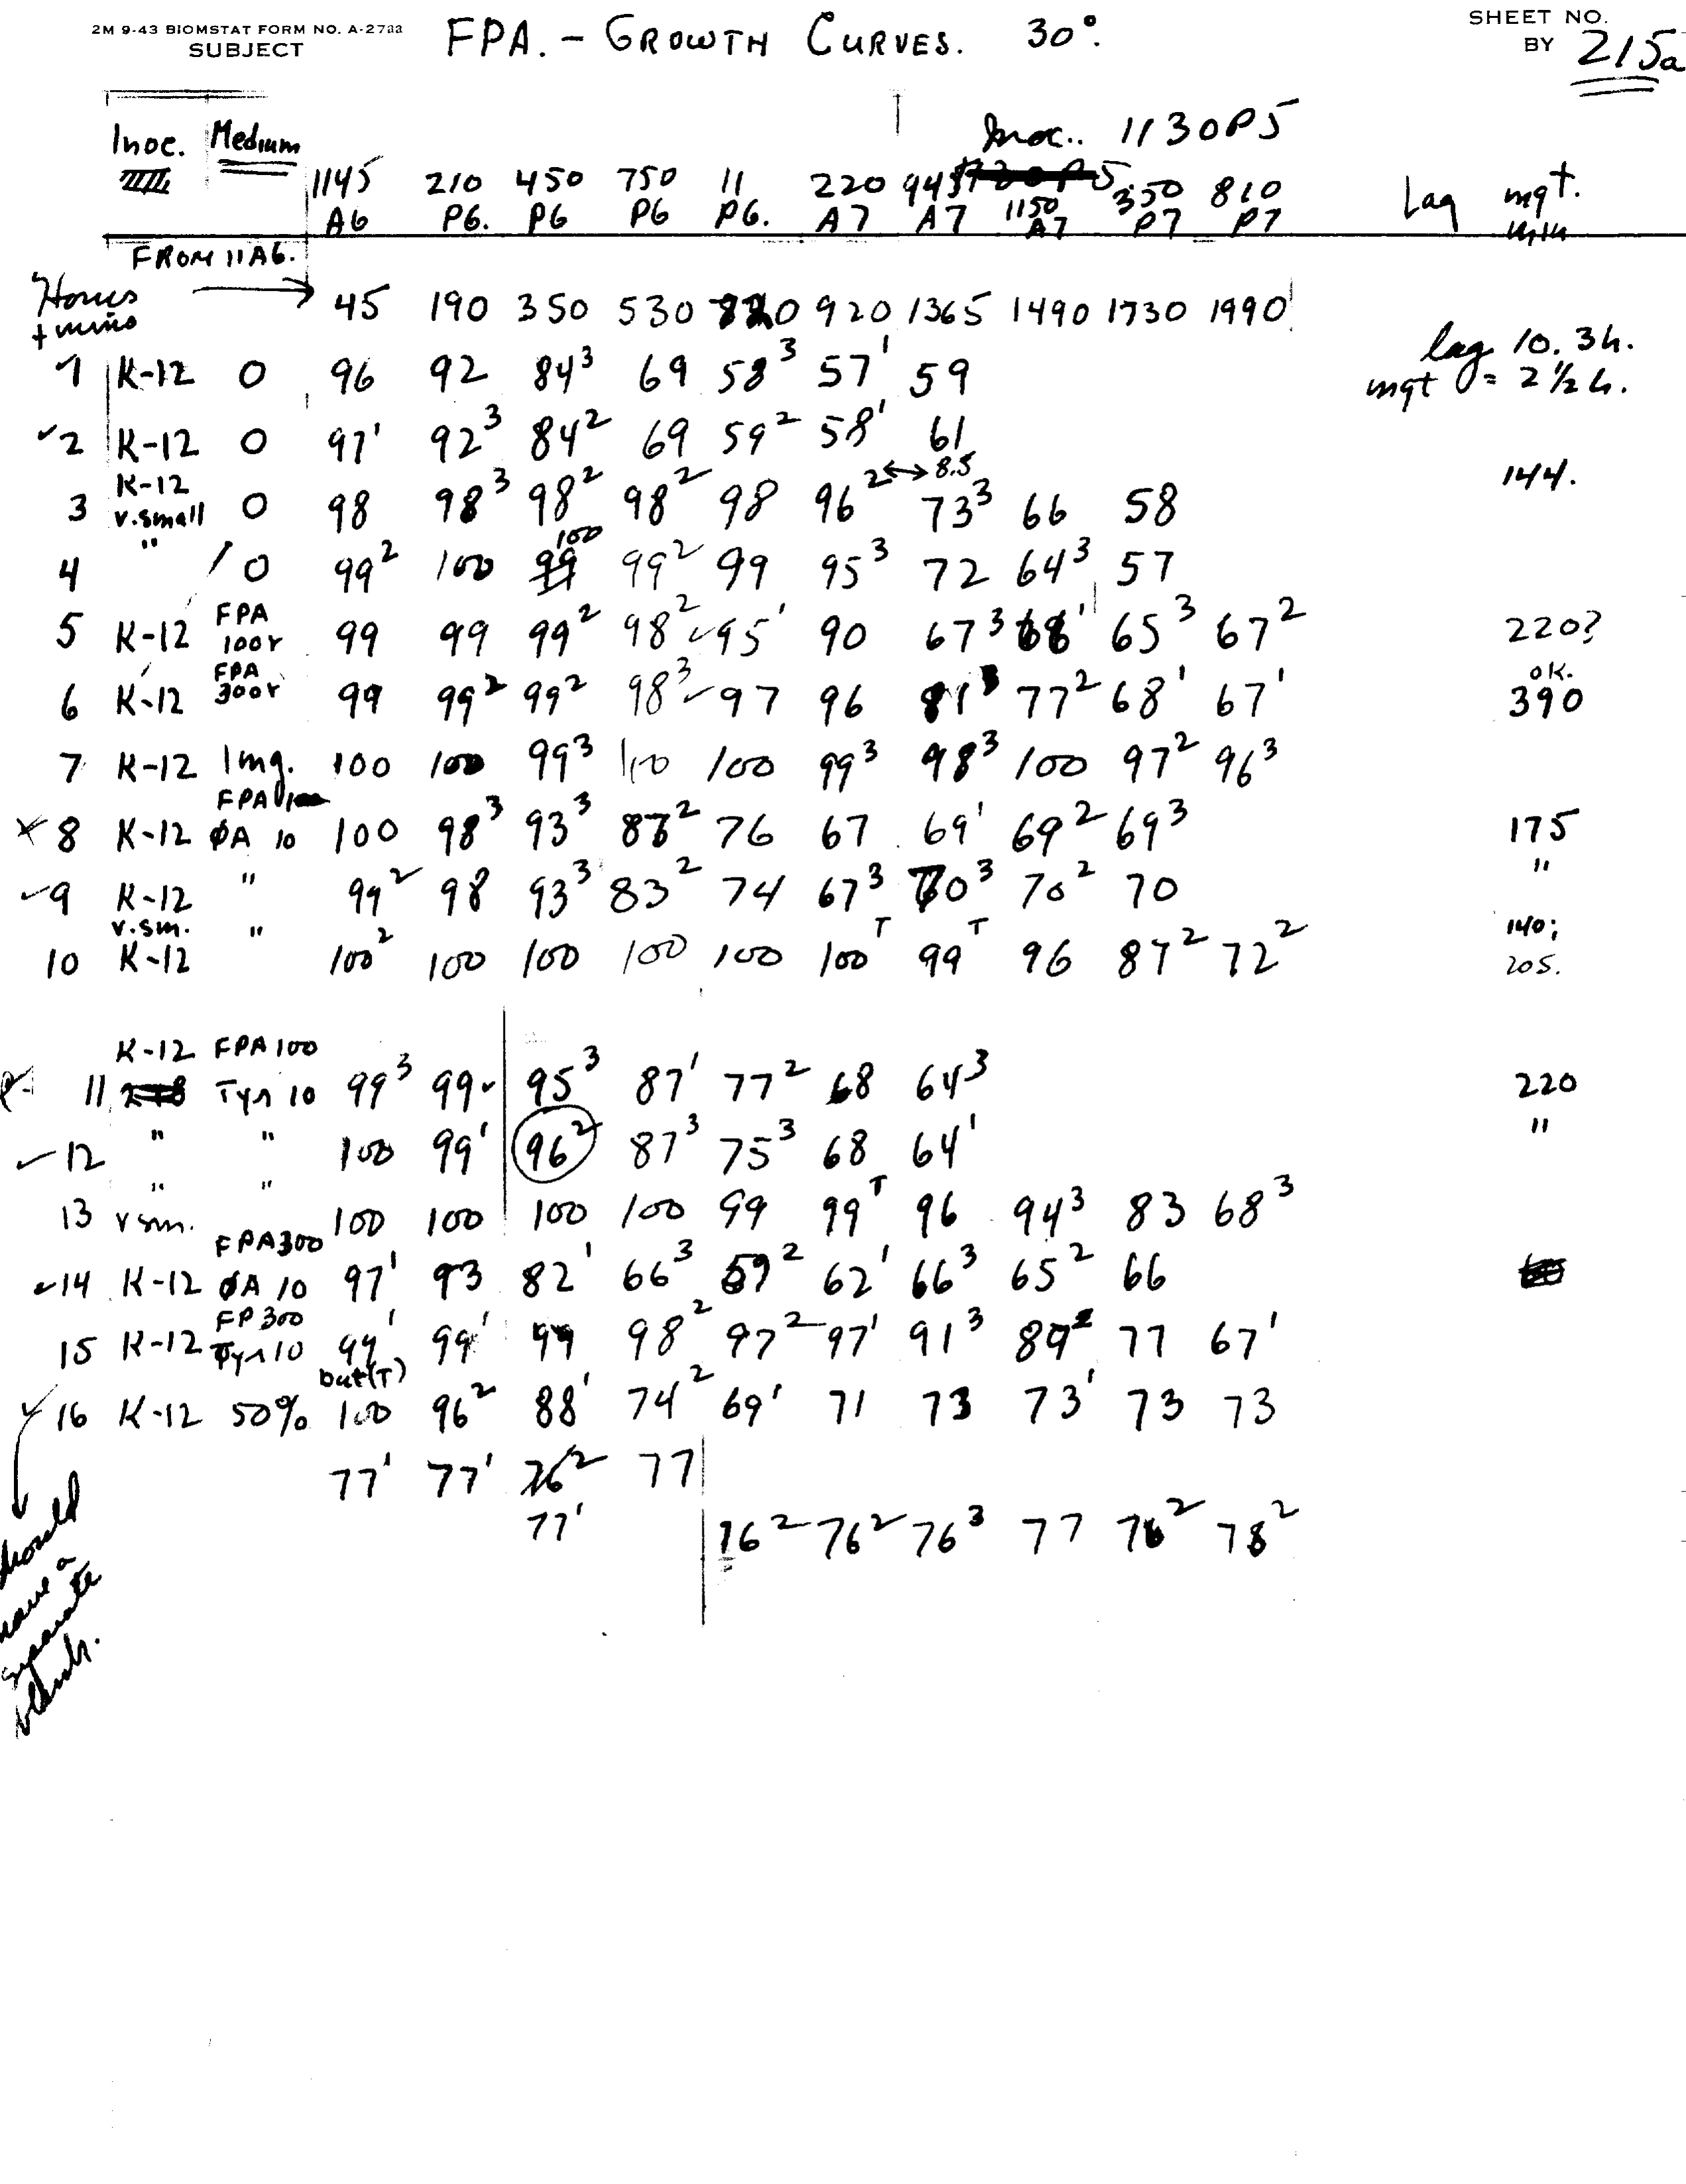 2M 9-43 BIOMSTAT FORM NO. A-2733
SUBJECT
FPA. - GROWTH CURVES. 30°.
SHEET NO.
BY 215a
Inoc. Medium
Inoc.. 1130P5
1145 210 450 750 11 220 945 1150 350 810 Lag mgt.
A6 P6. P6 P6 P6. A7 A7 A7 P7 P7 min
FROM 11A6.
Hours + mins → 45 190 350 530 920 1365 1490 1730 1990
1 K-12 0 96 92 84³ 69 58³ 57' 59 lag 10.3h.
mgt = 2 1/2 h.
2 K-12 0 97' 92³ 84² 69 59² 58' 61
3 K-12 v.small 0 98 98³ 98² 98² 98 96² ↔ 8.5 73³ 66 58 144.
4 " 0 99² 100 100 99² 99 95³ 72 64³ 57
5 K-12 FPA 100r 99 99 99² 98² 95' 90 67³ 68' 65³ 67² 220?
6 K-12 FPA 300r 99 99² 99² 98³ 97 96 81³ 77² 68' 67' ok. 390
7 K-12 1mg. 100 100 99³ 100 100 99³ 98³ 100 97² 96³
8 K-12 FPA ØA 10 100 98³ 93³ 87² 76 67 69' 69² 69³ 175
9 K-12 " 99² 98 93³ 83² 74 67³ 70³ 70² 70 "
10 v.sm. K-12 " 100² 100 100 100 100 100ᵀ 99ᵀ 96 87² 72² 140; 205.
11 K-12 FPA 100 Tyr 10 99³ 99 95³ 87' 77² 68 64³ 220
12 " " 100 99' 96² 87³ 75³ 68 64' "
13 " vsm. " 100 100 100 100 99 99ᵀ 96 94³ 83 68³
14 K-12 FPA300 ØA 10 97' 93 82' 66³ 59² 62' 66³ 65² 66
15 K-12 FP 300 Tyr 10 99' 99' 99 98² 97² 97' 91³ 89² 77 67'
16 K-12 50% but(T) 100 96² 88' 74² 69' 71 73 73' 73 73
77' 77' 76² 77
77' 76² 76² 76³ 77 76² 78²
should
have a
separate
blank.